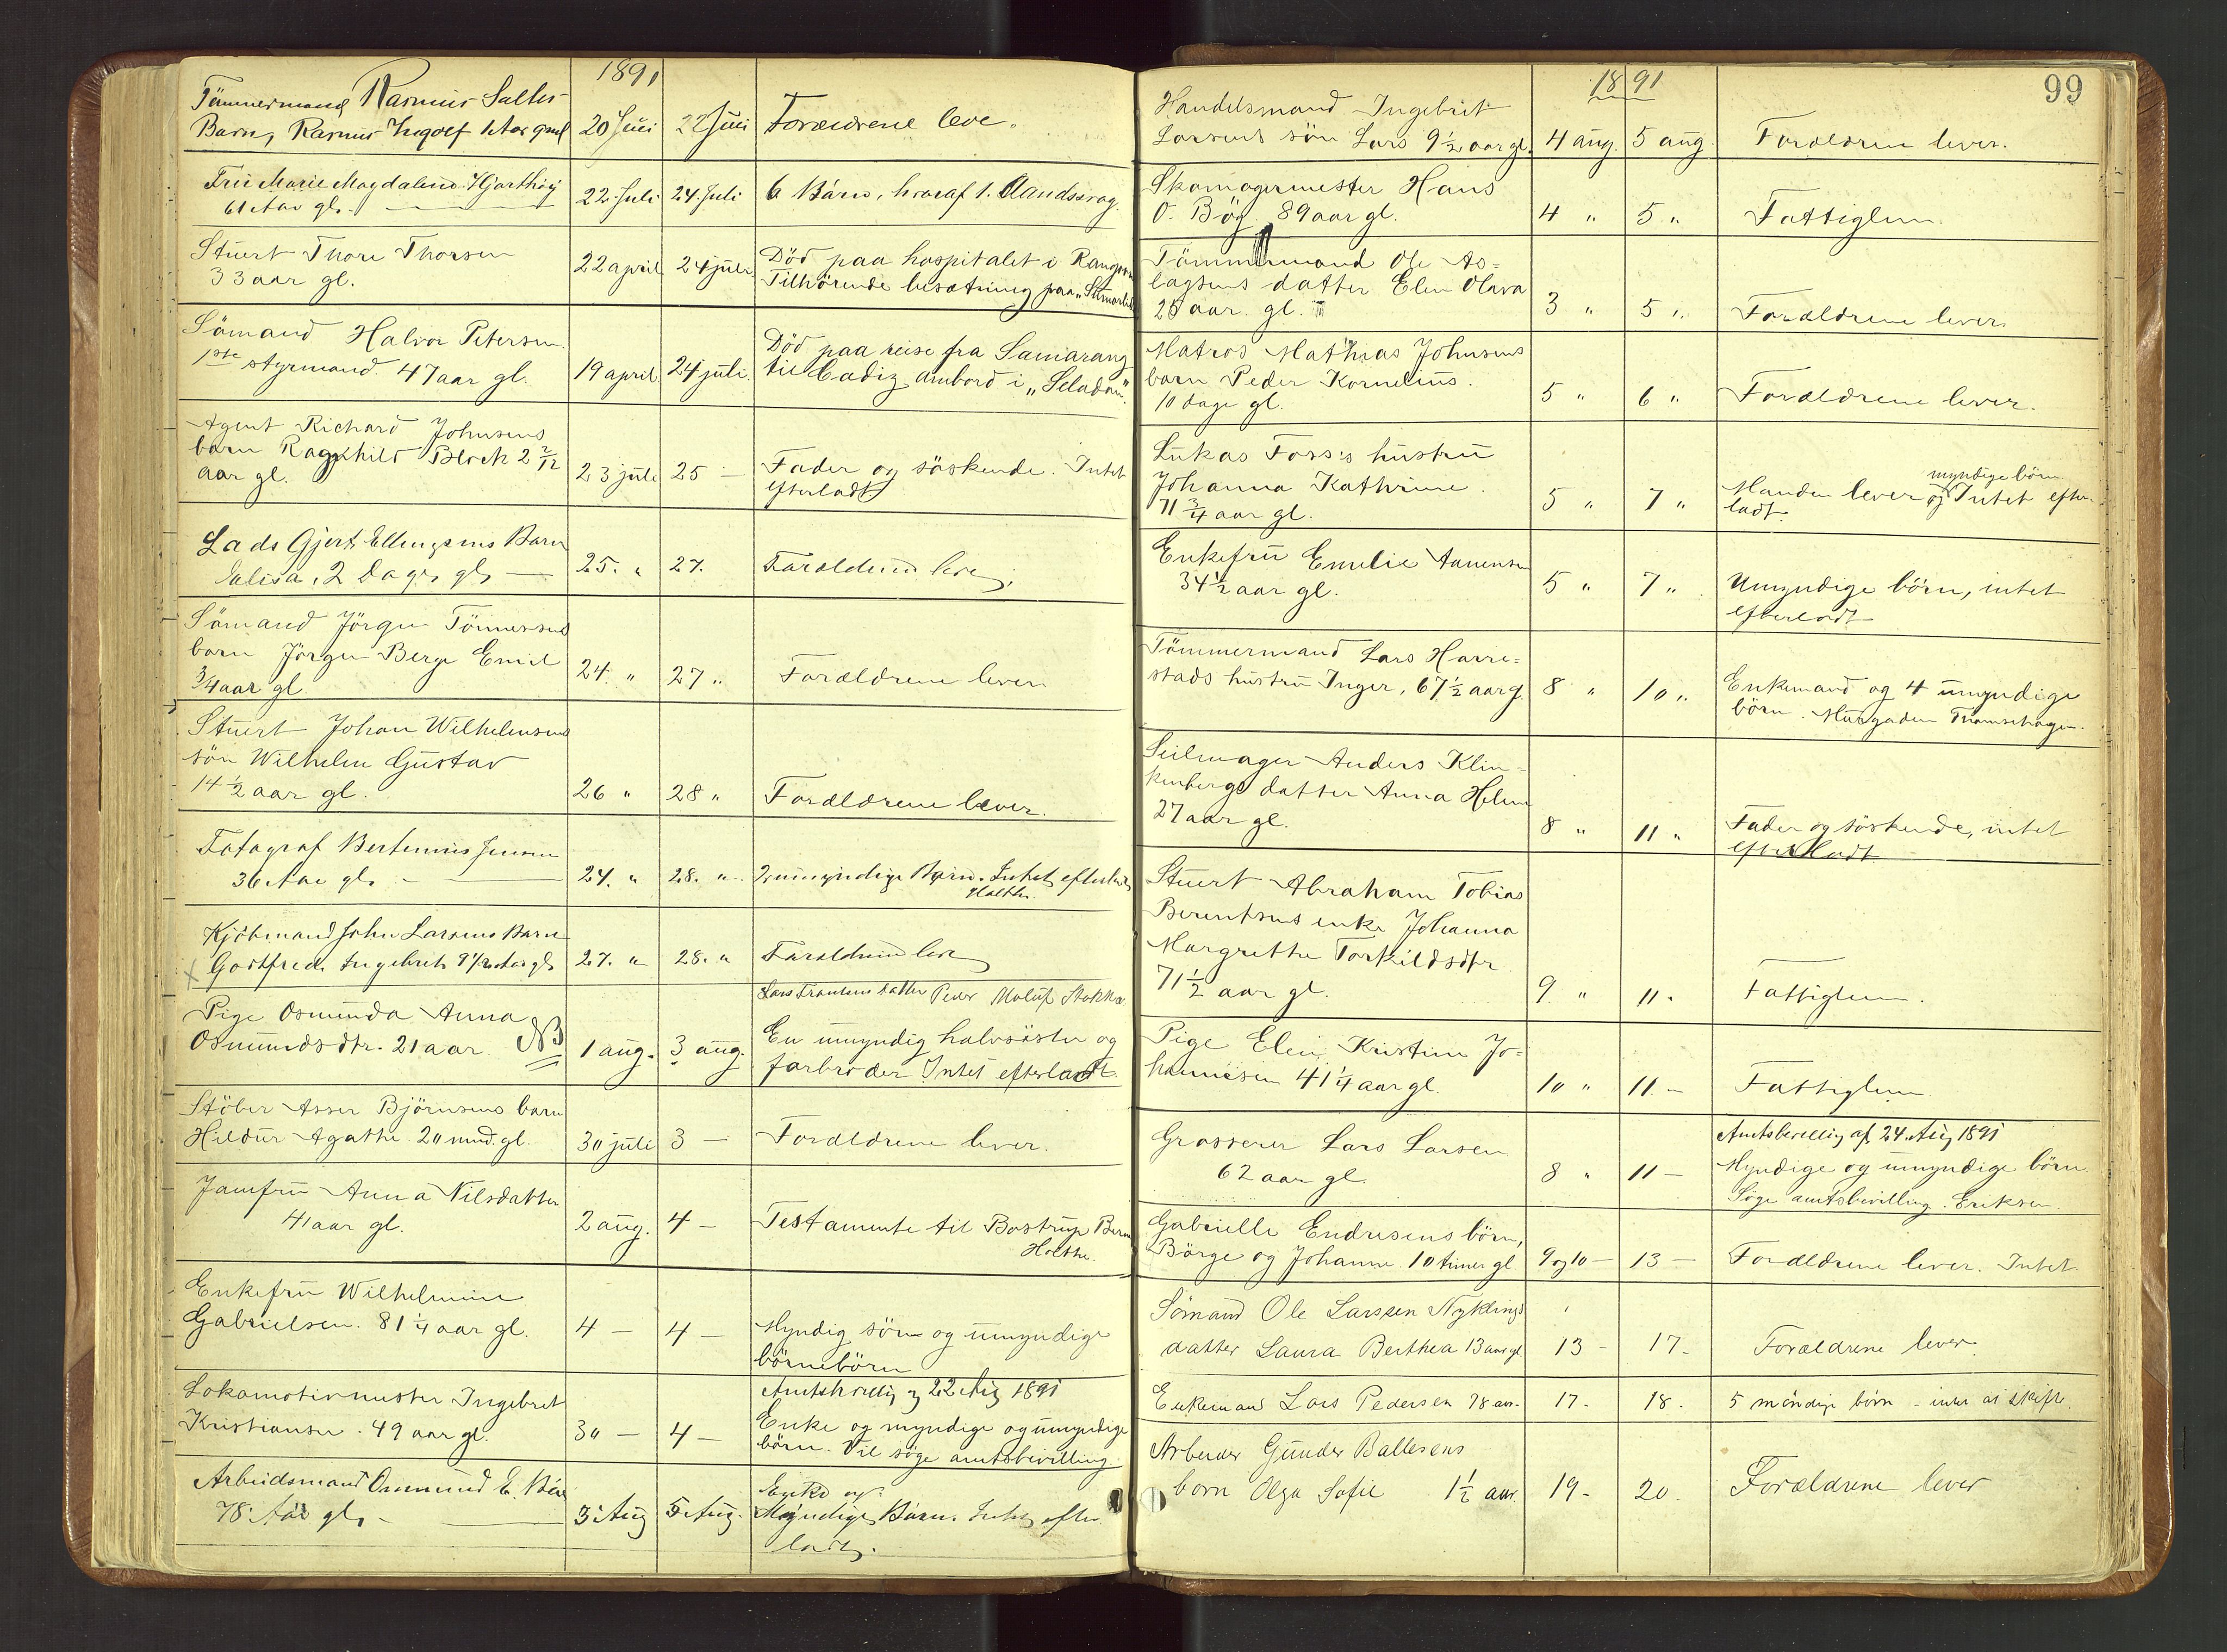 1891
Tömmermand Rasmus Salte's
Barn, Rasmus Ingolf 1 Aar gml 20 Juli 22 Juli Forældrene leve.
Frue Marie Magdalene Hjorthöy
61 Aar gl. 22. Juli 24. Juli 6 Börn, hvoraf 1. Aandssvag.
Stuert Thore Thorsen
33 aar gl. 22 april 24 juli Död paa hospitalet i Rangoon
Tilhörende besætning paa
Sömand Halvor Petersen
1ste styrmand. 47 aar gl. 19 april 24 juli. Död paa reise fra Samarang
til Cadiz ombord i „Seladon".
Agent Richard Johnsens
barn Ragnhild Bloch 2 2/12
aar gl. 23 juli 25 — Fader og söskende. Intet
efterladt
Lods Gjert Ellingsens Barn
Elisa, 2 Dage gl. 25. „ 27. Forældrene leve.
Sömand Jörgen Tönnessens
barn Jörgen Berge Emil
3/4 aar gl. 24. „ 27 „ Forældrene lever.
Stuert Johan Wilhelmsens
sön Wilhelm Gustav
14 1/2 aar gl. 26 „ 28 „ Forældrene lever.
Fotograf Bertinius Jensen
36 Aar gl. 24. „ 28. „ 2 umyndige Börn. Intet efterladt
Holthe.
Kjöbmand John Larsens Barn
Godtfred Ingebret 9 1/2 Aar gl. 27. „ 28. „ Forældrene leve
Lars Frantsens datter Peder Maluf Stokka
Pige Osmunda Anna
Osmundsdtr. 21 aar. NB 1 aug. 3 aug. En umyndig halvsöster og
farbroder Intet efterladt.
Stöber Asser Björnsens barn
Hildur Agathe 20 mnd. gl. 30 juli 3 — Forældrene lever.
Jomfru Anna Nilsdatter
41 aar gl. 2 aug. 4 — Testamente til Bostrup
Holthe.
Enkefru Wilhelmine
Gabrielsen. 81 1/4 aar gl. 4 — 4 — Myndig sön og umyndige
börnebörn
Lokomotivmester Ingebret
Kristiansen. 49 aar gl. 30 — 4 — Amtsbevillig af 22 Aug 1891
Enke og myndige og umyndige
börn. Vil söge amtsbevilling.
Arbeidsmand Ommund E. Böe
78. Aar gl. 3 Aug 5 Aug. Enke og
Myndige Börn. Intet efter
ladt.
99
1891
Handelsmand Ingebrit
Larsens sön Lars 9 1/2 aar gl. 4 aug. 5 aug. Forældrene lever.
Skomagermester Hans
O. Bög 89 aar gl. 4 „ 5 „ Fattiglem.
Tömmermand Ole As=
lagsens datter Elen Olava
25 aar gl. 3 „ 5 „ Forældrene lever.
Matros Mathias Johnsens
barn Peder Kornelius.
10 dage gl. 5 „ 6 „ Forældrene lever.
Lukas Foss's hustru
Johanna Kathrine.
71 3/4 aar gl. 5 „ 7 „ Manden lever og myndige börn Intet efter-
ladt.
Enkefru Emelie Aanensen
34 1/2 aar gl. 5 „ 7 „ Umyndige börn, intet
efterladt
Tömmermand Lars Harre=
stads hustru Inger, 67 1/2 aar g. 8 „ 10 „ Enkemand og 4 umyndige
börn. Murgaden Thomsehagen.
Seilmager Anders Klin=
kenbergs datter Anna Helene
27 aar gl. 8 „ 11 „ Fader og söskende, intet
efterladt
Stuert Abraham Tobias
Berentsens enke Johanna
Margrethe Torkildsdtr
71 1/2 aar gl. 9 „ 11 „ Fattiglem.
Pige Elen Kristine Jo=
hannesen 41 1/4 aar gl. 10 „ 11 — Fattiglem
Grosserer Lars Larsen
62 aar gl. 8 „ 11 — Amtsbevillig af 24. Aug 1891
Myndige og umyndige börn.
Söge amtsbevilling. Eriksen.
Gabrielle Endresens börn,
Börge og Johanne 10 timer gl 9 og 10 — 13 — Forældrene lever. Intet
Sömand Ole Larssen Nyklings
datter Laura Berthea 13 aar gl 13 - 17 - Forældrene lever.
Enkemand Lars Pedersen 78 aar. 17. 18. 5 myndige börn - intet at skifte.
Arbeider Gunder Ballesens
barn Olga Sofie 1 1/2 aar. 19 - 20. Forældrene lever